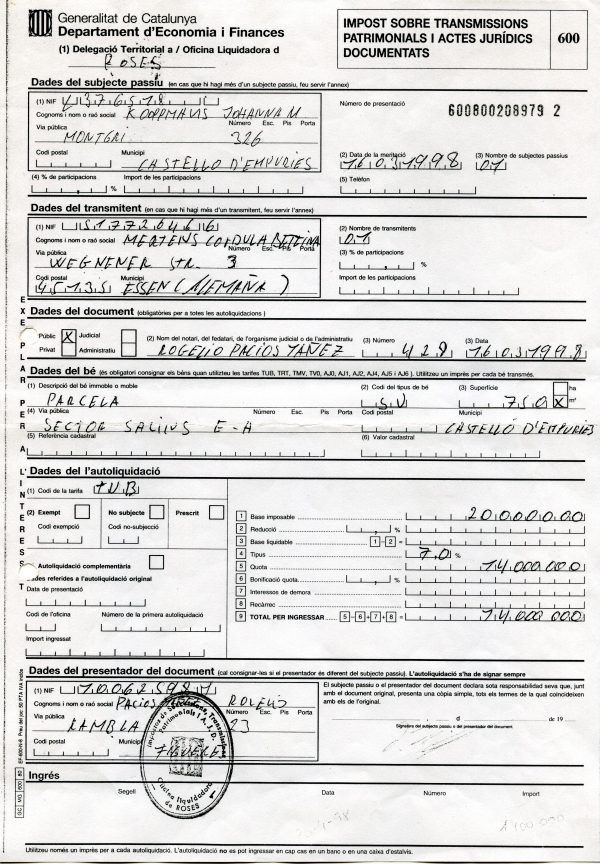 Generalitat de Catalunya
Departament d'Economia i Finances
(1) Delegació Territorial a / Oficina Liquidadora d
ROSES
IMPOST SOBRE TRANSMISSIONS
PATRIMONIALS I ACTES JURÍDICS
DOCUMENTATS
600
Dades del subjecte passiu (en cas que hi hagi més d'un subjecte passiu, feu servir l'annex)
(1) NIF
Cognoms i nom o raó social JOHANNA M
Número de presentació 600800208979 2
Via pública Número Esc. Pis Porta
MONTGRI 326
Codi postal Municipi
CASTELLO D'EMPURIES
(2) Data de la meritació 16 03 1998
(3) Nombre de subjectes passius 01
(4) % de participacions Import de les participacions
(5) Telèfon
Dades del transmitent (en cas que hi hagi més d'un transmitent, feu servir l'annex)
(1) NIF
Cognoms i nom o raó social MERTENS CORDULA BETTINA
(2) Nombre de transmitents 01
Via pública Número Esc. Pis Porta
WEGNENER STR. 3
(3) % de participacions
Codi postal Municipi
45135 ESSEN (ALEMAÑA)
Import de les participacions
Dades del document (obligatòries per a totes les autoliquidacions)
Públic X Judicial
Privat Administratiu
(2) Nom del notari, del fedatari, de l'organisme judicial o de l'administratiu
ROGELIO PACIOS YAÑEZ
(3) Número 428
(3) Data 16 03 1998
Dades del bé (és obligatori consignar els béns quan utilitzeu les tarifes TUB, TRT, TMV, TV0, AJ0, AJ1, AJ2, AJ4, AJ5 i AJ6). Utilitzeu un imprès per cada bé transmès.
(1) Descripció del bé immoble o moble
PARCELA
(2) Codi del tipus de bé SU
(3) Superfície 750 ha X m²
(4) Via pública Número Esc. Pis Porta Codi postal Municipi
SECTOR SALINS E-A CASTELLO D'EMPURIES
(5) Referència cadastral
(6) Valor cadastral
Dades de l'autoliquidació
(1) Codi de la tarifa TUB
(2) Exempt No subjecte Prescrit
Codi exempció Codi no-subjecció
Autoliquidació complementària
Dades referides a l'autoliquidació original
Data de presentació
Codi de l'oficina Número de la primera autoliquidació
Import ingressat
1 Base imposable 20.000.000
2 Reducció %
3 Base liquidable 1 - 2 =
4 Tipus 7,0 %
5 Quota 1.4.000.000
6 Bonificació quota %
7 Interessos de demora
8 Recàrrec
9 TOTAL PER INGRESSAR 5 - 6 + 7 + 8 = 1.4.000.000
Dades del presentador del document (cal consignar-les si el presentador és diferent del subjecte passiu). L'autoliquidació s'ha de signar sempre
(1) NIF
Cognoms i nom o raó social PACIOS
Via pública Número Esc. Pis Porta
RAMBLA 23
Codi postal Municipi
FIGUERES
El subjecte passiu o el presentador del document declara sota responsabilitat seva que, junt amb el document original, presenta una còpia simple, tots els termes de la qual coincideixen amb els de l'original.
d de 19
Signatura del subjecte passiu o del presentador del document
Oficina liquidadora
de ROSES
Ingrés
Segell Data Número Import
Utilitzeu només un imprès per a cada autoliquidació. L'autoliquidació no es pot ingressar en cap cas en un banc o en una caixa d'estalvis.
EXEMPLAR PER A L'INTERESSAT